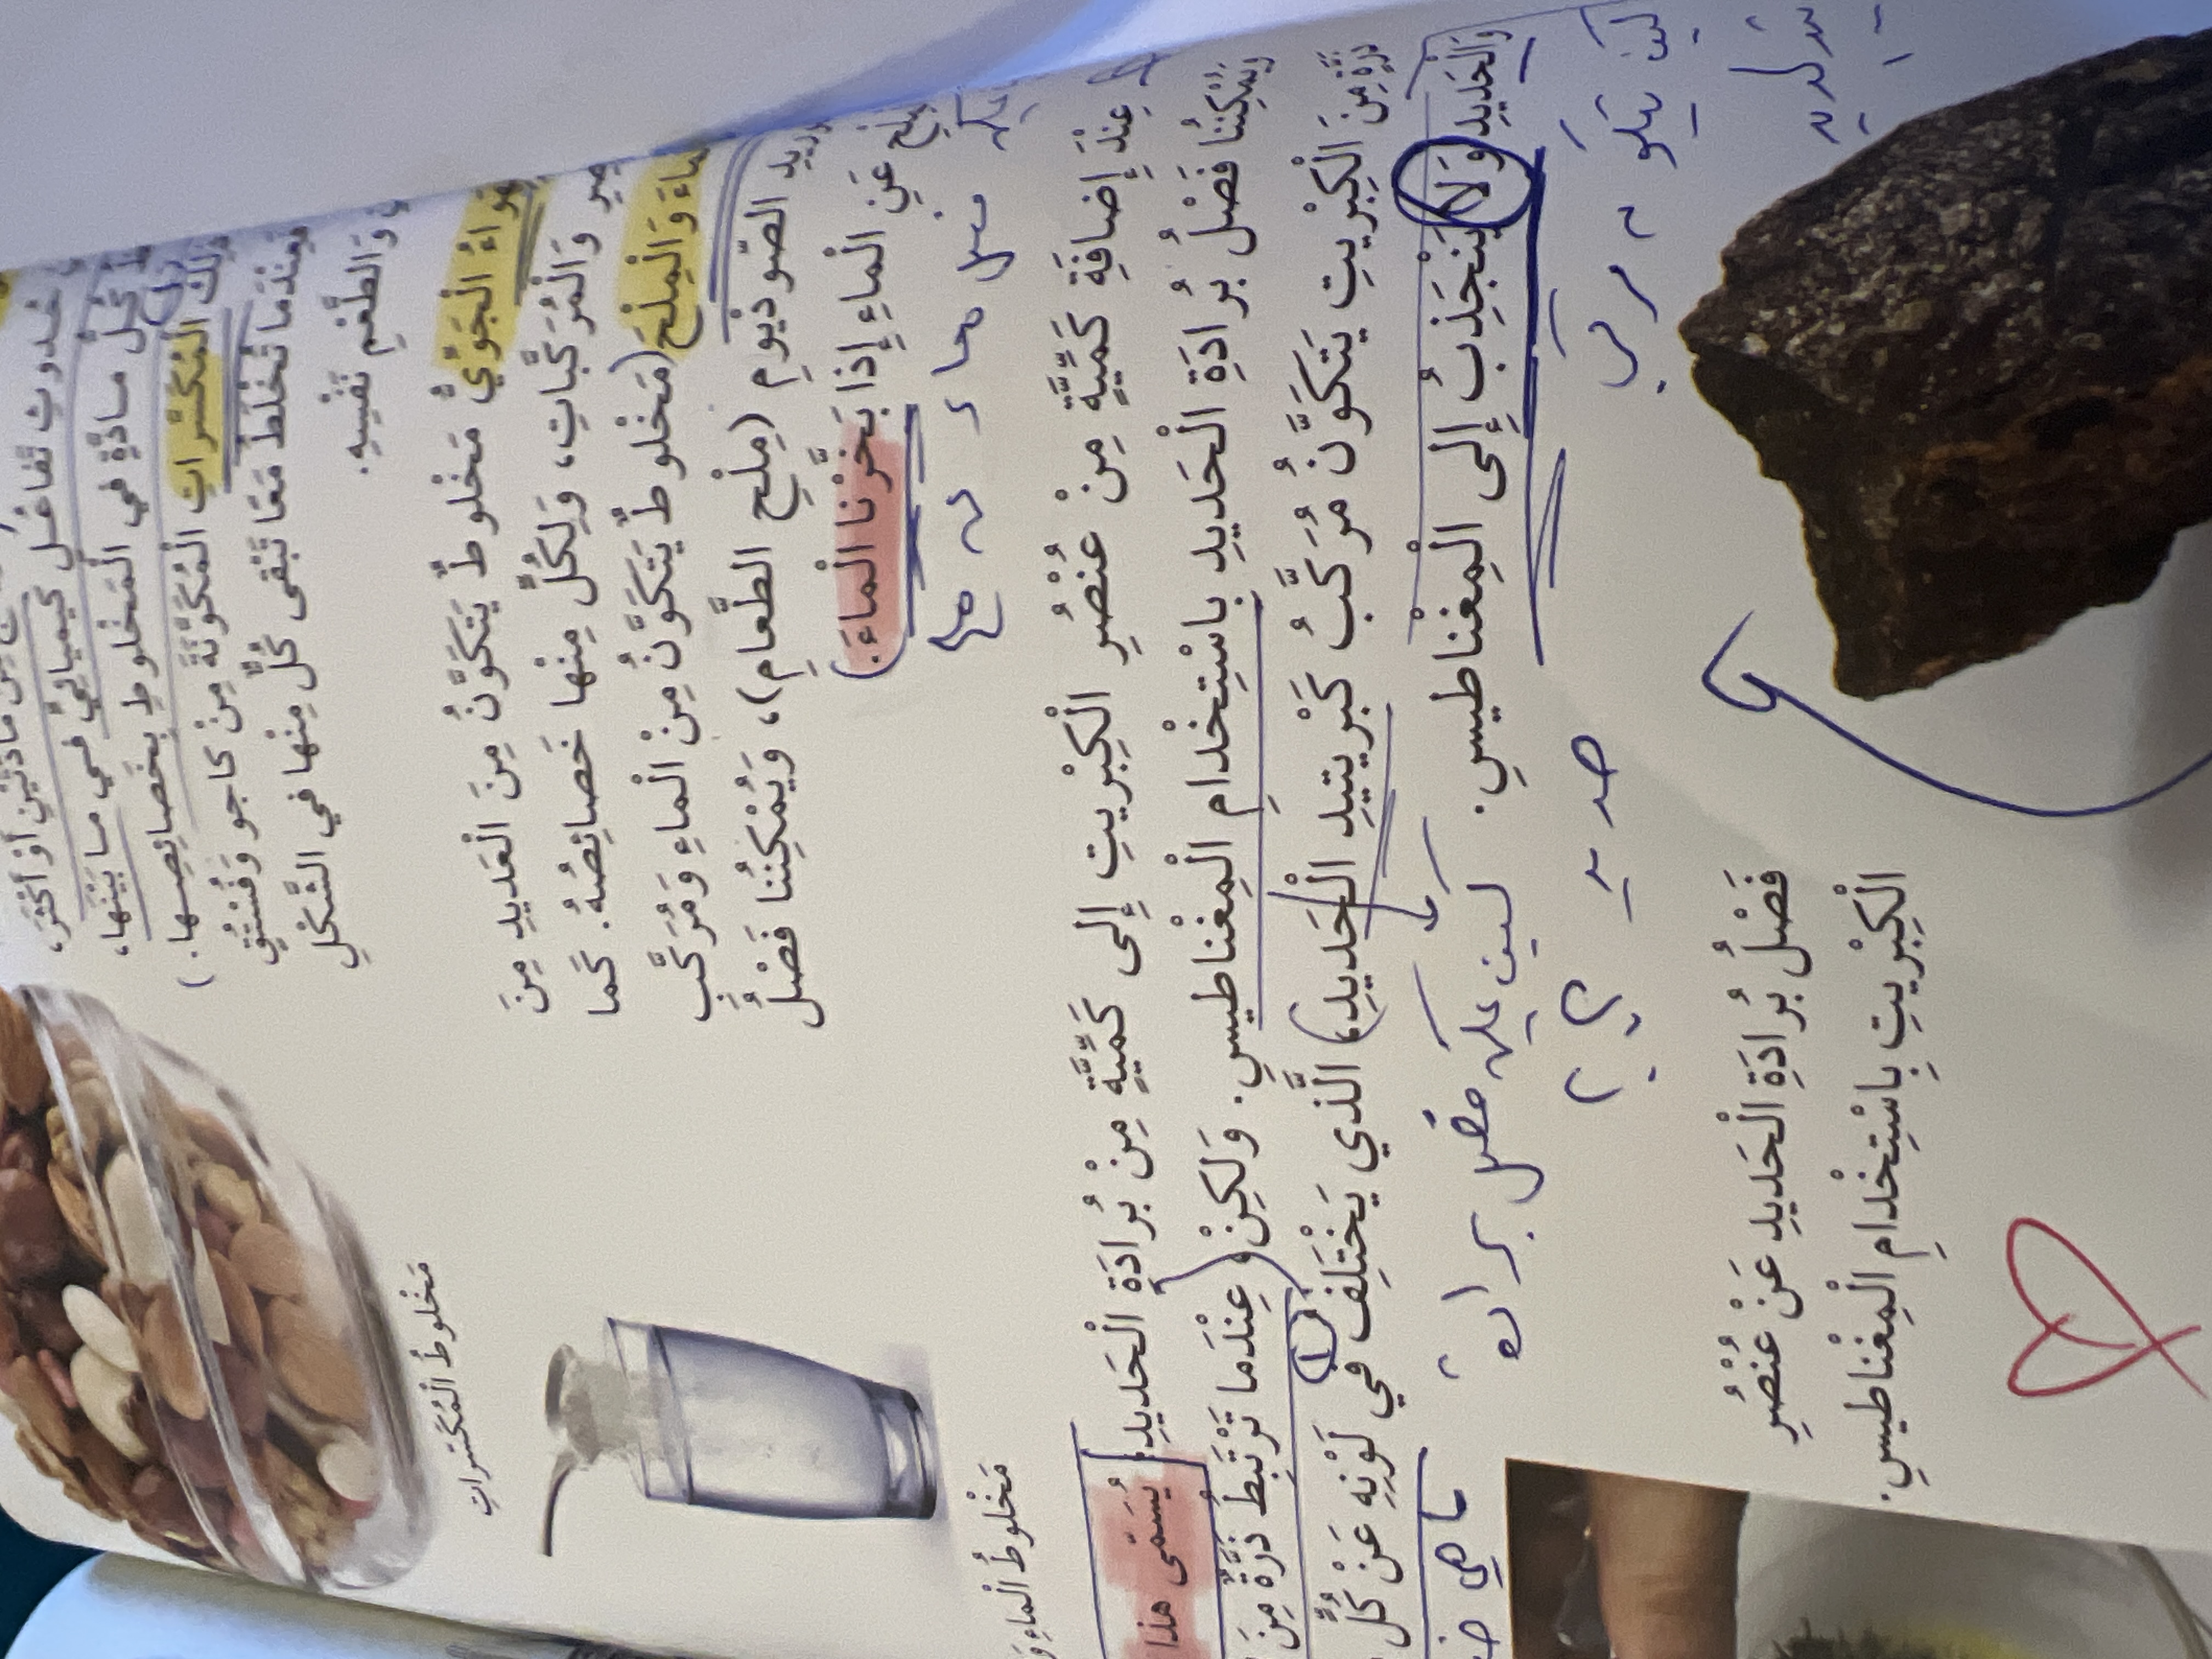 حُدوثِ تَفاعُلٍ كيميائِيٍّ في ما بَيْنَها،
كُلُّ مادَّةٍ في الْمَخْلوطِ بِخَصائِصِها.
الْمُكَسَّراتِ الْمُكَوَّنَةُ مِنْ كاجو وَفُسْتُقٍ
فَعِنْدَما تُخْلَطُ مَعًا تَبْقى كُلٌّ مِنْها في الشَّكْلِ
وَالطَّعْمِ نَفْسِهِ.
مَخْلوطُ الْمُكَسَّراتِ
الْجَوِّيُّ مَخْلوطٌ يَتَكَوَّنُ مِنَ الْعَديدِ مِنَ
وَالْمُرَكَّباتِ، وَلِكُلٍّ مِنْها خَصائِصُهُ. كَما
وَالْمِلْحَ (مَخْلوطٌ يَتَكَوَّنُ مِنْ الْماءِ وَمُرَكَّبِ
الصّوديومِ (مِلْحِ الطَّعامِ)، وَيُمْكِنُنا فَصْلُ
عَنِ الْماءِ إِذا بَخَّرْنا الْماءَ.)
فصل ماء عن ملح
مَخْلوطُ الْماءِ
عِنْدَ إِضافَةِ كَمِّيَّةٍ مِنْ عُنْصُرِ الْكِبْريتِ إِلى كَمِّيَّةٍ مِنْ بُرادَةِ الْحَديدِ، يُسَمّى هذا
وَيُمْكِنُنا فَصْلُ بُرادَةِ الْحَديدِ بِاسْتِخْدامِ الْمِغْناطيسِ. وَلكِنْ عِنْدَما تَرْتَبِطُ ذَرَّةٌ مِنَ
ذَرَّةٍ مِنَ الْكِبْريتِ يَتَكَوَّنُ مُرَكَّبُ كَبْريتيدِ الْحَديدِ، الَّذي يَخْتَلِفُ في لَوْنِهِ عَنْ كُلٍّ
وَالْحَديدِ وَلا يَنْجَذِبُ إِلى الْمِغْناطيسِ.
كيف يمكن فصل برادة
حديد ؟؟
ما هي
كيف يتكون مركب
فَصْلُ بُرادَةِ الْحَديدِ عَنْ عُنْصُرِ
الْكِبْريتِ بِاسْتِخْدامِ الْمِغْناطيسِ.